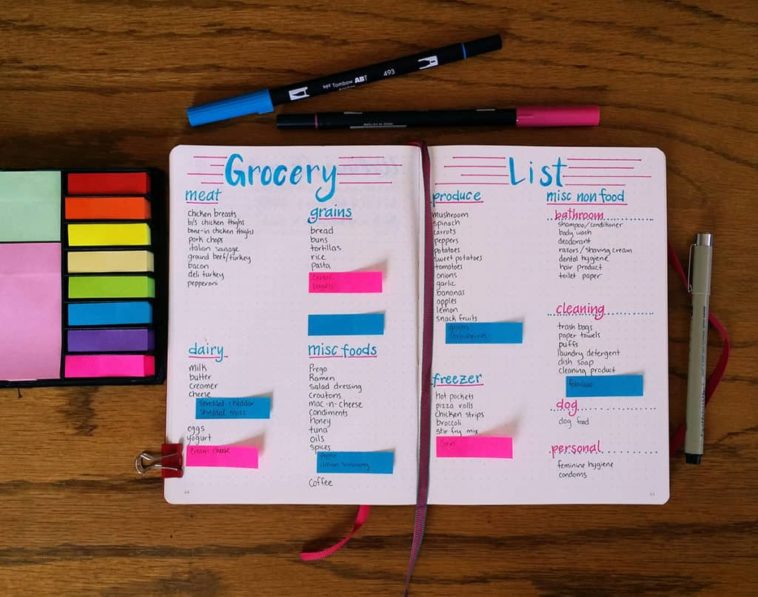 Tombow ABT
493
Grocery
List
meat
chicken breasts
b/s chicken thighs
bone-in chicken thighs
pork chops
italian sausage
ground beef/turkey
bacon
deli turkey
pepperoni
grains
bread
buns
tortillas
rice
pasta
dairy
milk
butter
creamer
cheese
shredded cheddar
shredded mozz
eggs
yogurt
cream cheese
misc foods
Prego
Ramen
salad dressing
croutons
mac-n-cheese
condiments
honey
tuna
oils
spices
coffee
produce
mushroom
spinach
carrots
peppers
potatoes
sweet potatoes
tomatoes
onions
garlic
bananas
apples
lemon
snack fruits
freezer
hot pockets
pizza rolls
chicken strips
broccoli
stir fry mix
misc non food
bathroom
shampoo/conditioner
body wash
deodorant
razors/shaving cream
dental hygiene
hair product
toilet paper
cleaning
trash bags
paper towels
puffs
laundry detergent
dish soap
cleaning product
dog
dog food
personal
feminine hygiene
condoms